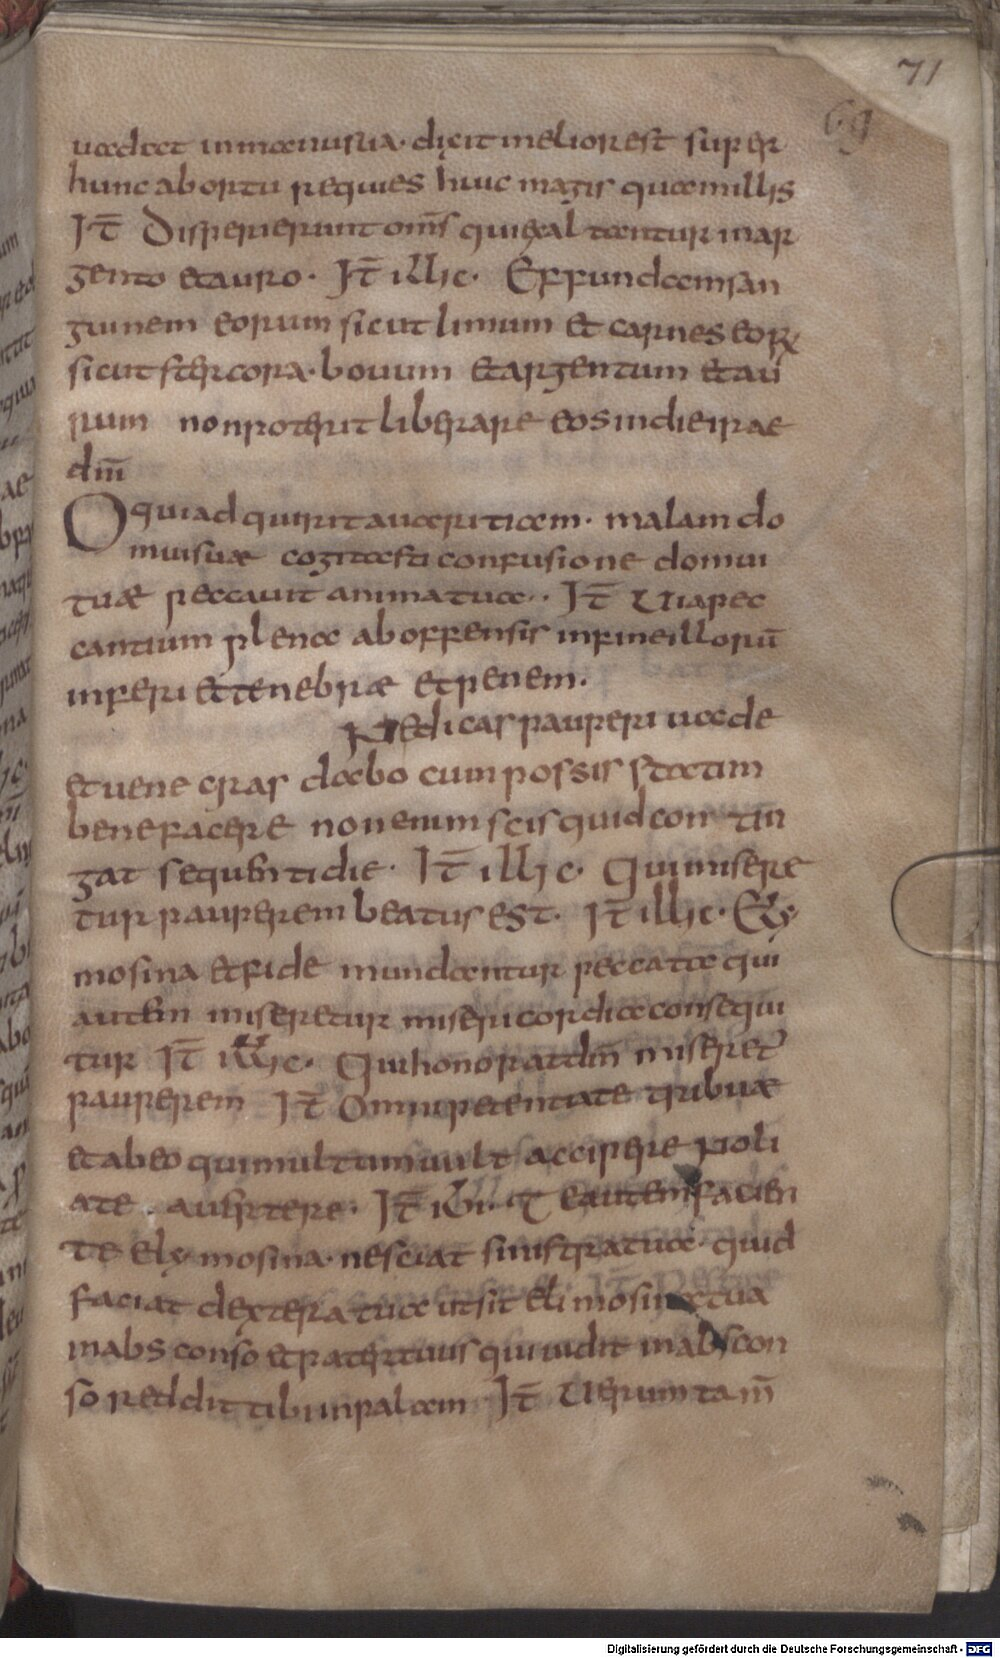 71
69
uadat in manu sua. dicit melior est super
hunc abortu requies huic magis quam illis
It̄ Disperierunt om̄s qui exaltantur in ar
gento et auro. It̄ illic. Effundam san
guinem eorum sicut limum et carnes eoꝝ
sicut stercora. bouum et argentum et au
rum non poterit liberare eos in die irae
dn̄i
O qui adquirit auaritiam. malam do
mui suae cogitasti confusione domui
tuae peccauit anima tua.. It̄ Uia pec
cantium plena ab offensis in fine illorū
inferi et tenebrae et penem.
Ne dicas pauperi uade
et uene cras dabo cum possis statim
benefacere non enim scis quid contin
gat sequenti die. It̄ illic. Qui misere
tur pauperem beatus est. It̄ illic. Ely
mosina et fide mundantur peccata qui
autem miseretur misericordia consequi
tur It̄ illic. Qui honorat dm̄ miseret
pauperem It̄ Omni petentiate tribuae
et abeo qui multum uult accipere noli
ate. auertere. It̄ ibi. Te autem facien
te elymosina. nesciat sinistra tua. quid
faciat dextera tua ut sit elimosina tua
in absconso et pater tuus qui uidit in abscon
so reddit tibi in palam It̄ Uerum tam̄
Digitalisierung gefördert durch die Deutsche Forschungsgemeinschaft - DFG